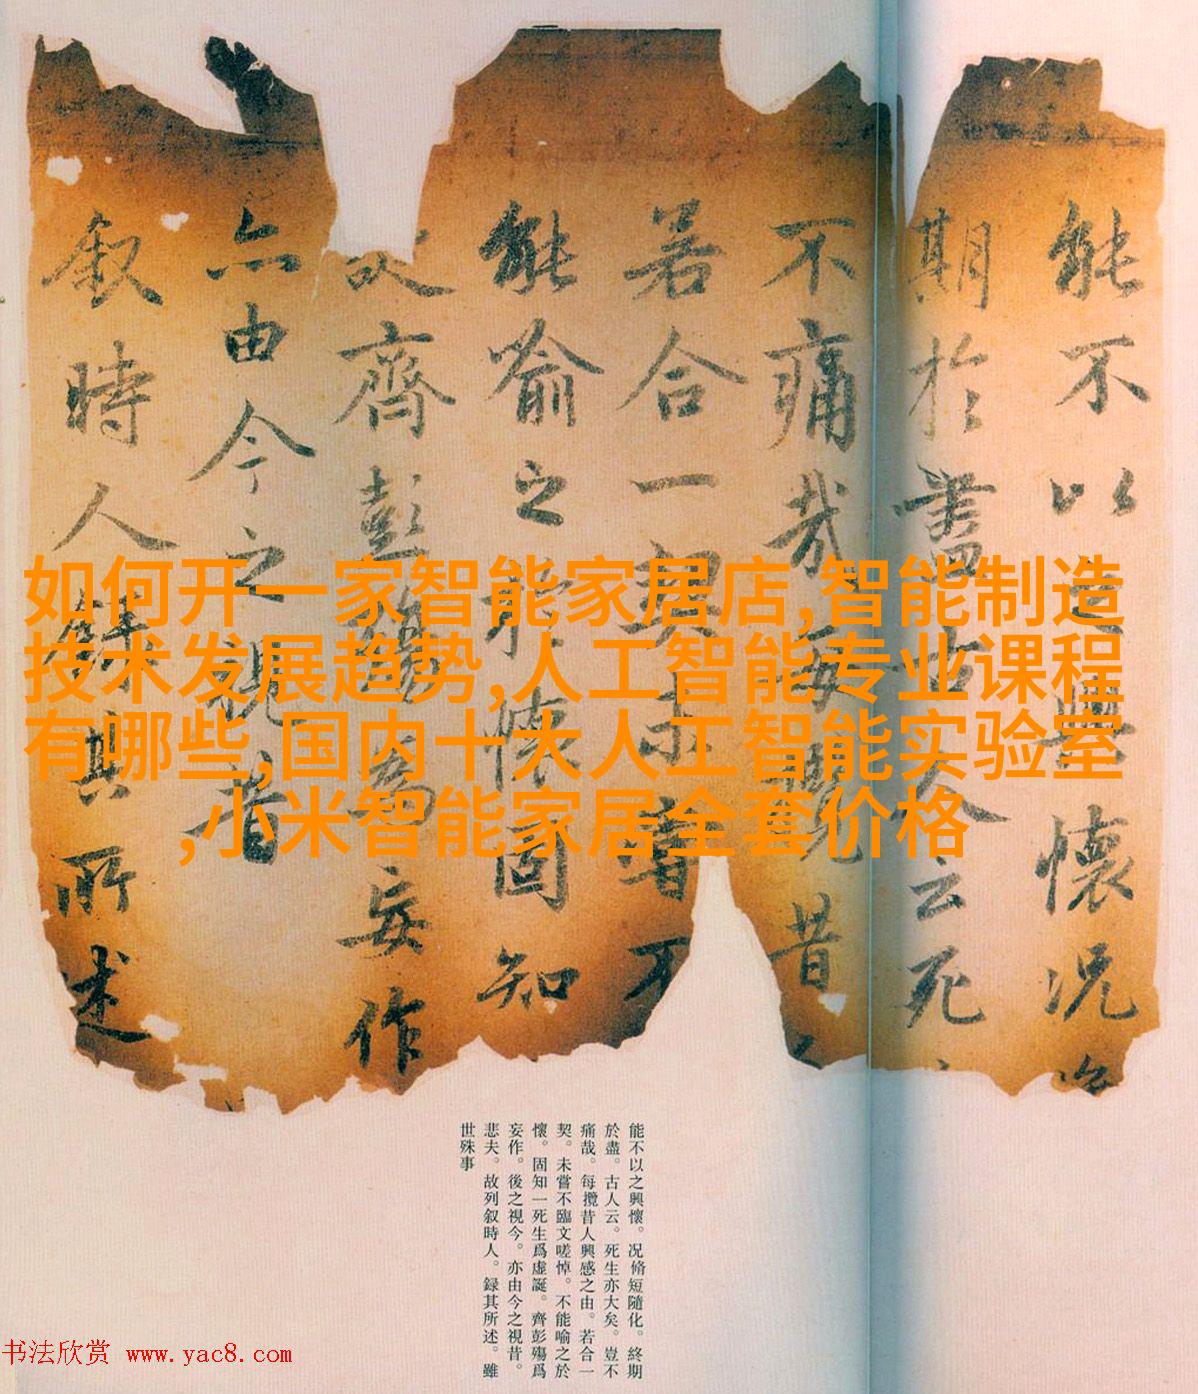 能不以之興懷况
期於盡古人云死
不痛哉每攬昔
若合一契未嘗不
能喻之於懷固知
齊彭殤為妄作
亦由今之視昔
叙時人録其所述
如何开一家智能家居店,智能制造
技术发展趋势,人工智能专业课程
有哪些,国内十大人工智能实验室
,小米智能家居全套价格
能不以之興懷。况脩短隨化。終期
於盡。古人云。死生亦大矣。豈不
痛哉。每攬昔人興感之由。若合一
契。未嘗不臨文嗟悼。不能喻之於
懷。固知一死生爲虛誕。齊彭殤爲
妄作。後之視今。亦由今之視昔。
悲夫。故列叙時人。録其所述。雖
世殊事
书法欣赏 www.yac8.com